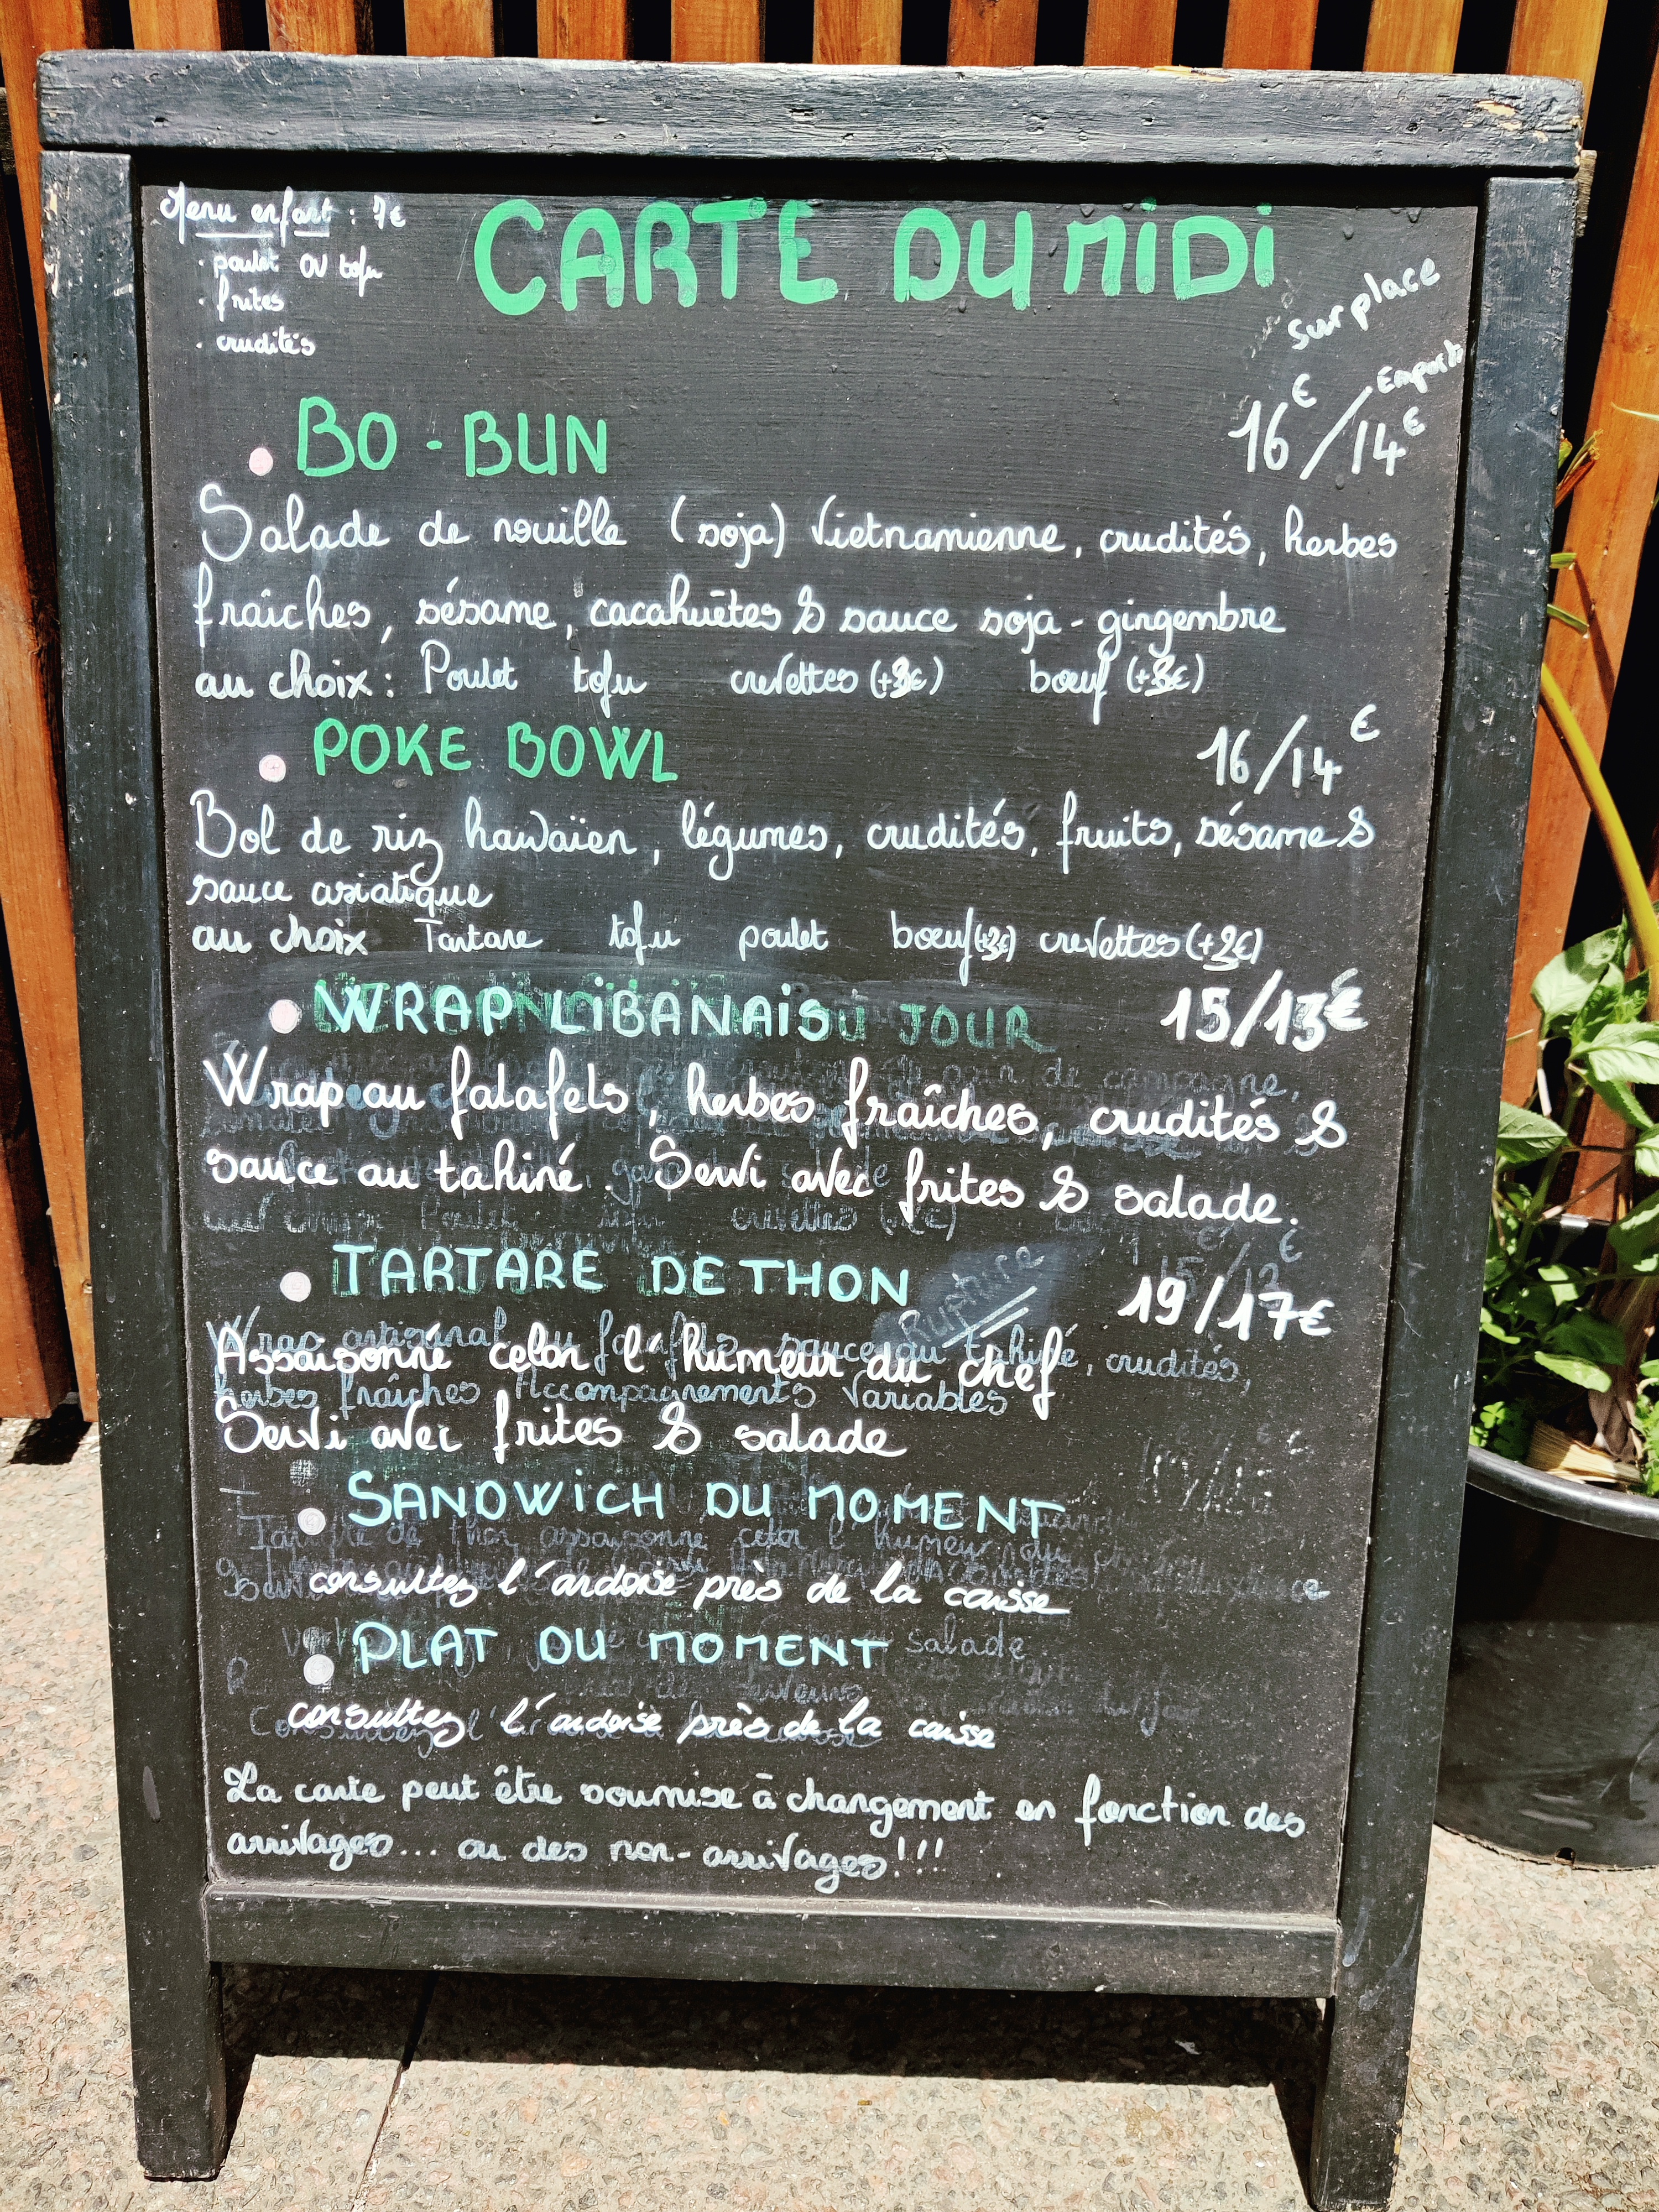 Menu enfant : 7€
· poulet ou tofu
· frites
· crudités
CARTE DU MIDI
Sur place
Emporté
BO-BUN 16€/14€
Salade de nouille (soja) Vietnamienne, crudités, herbes
fraîches, sésame, cacahuètes & sauce soja-gingembre
au choix: Poulet tofu crevettes (+3€) boeuf (+3€)
POKE BOWL 16/14€
Bol de riz hawaïen, légumes, crudités, fruits, sésame &
sauce asiatique
au choix Tartare tofu poulet boeuf crevettes (+2€)
WRAP LIBANAIS JOUR 15/13€
Wrap au falafels, herbes fraîches, crudités &
sauce au tahiné. Servi avec frites & salade.
TARTARE DE THON Rupture 19/17€
Assaisonné celon l'humeur du chef
herbes fraîches Accompagnements Variables
Servi avec frites & salade
SANDWICH DU MOMENT
consultez l'ardoise près de la caisse
PLAT DU MOMENT
salade
consultez l'ardoise près de la caisse
La carte peut être soumise à changement en fonction des
arrivages... ou des non-arrivages!!!